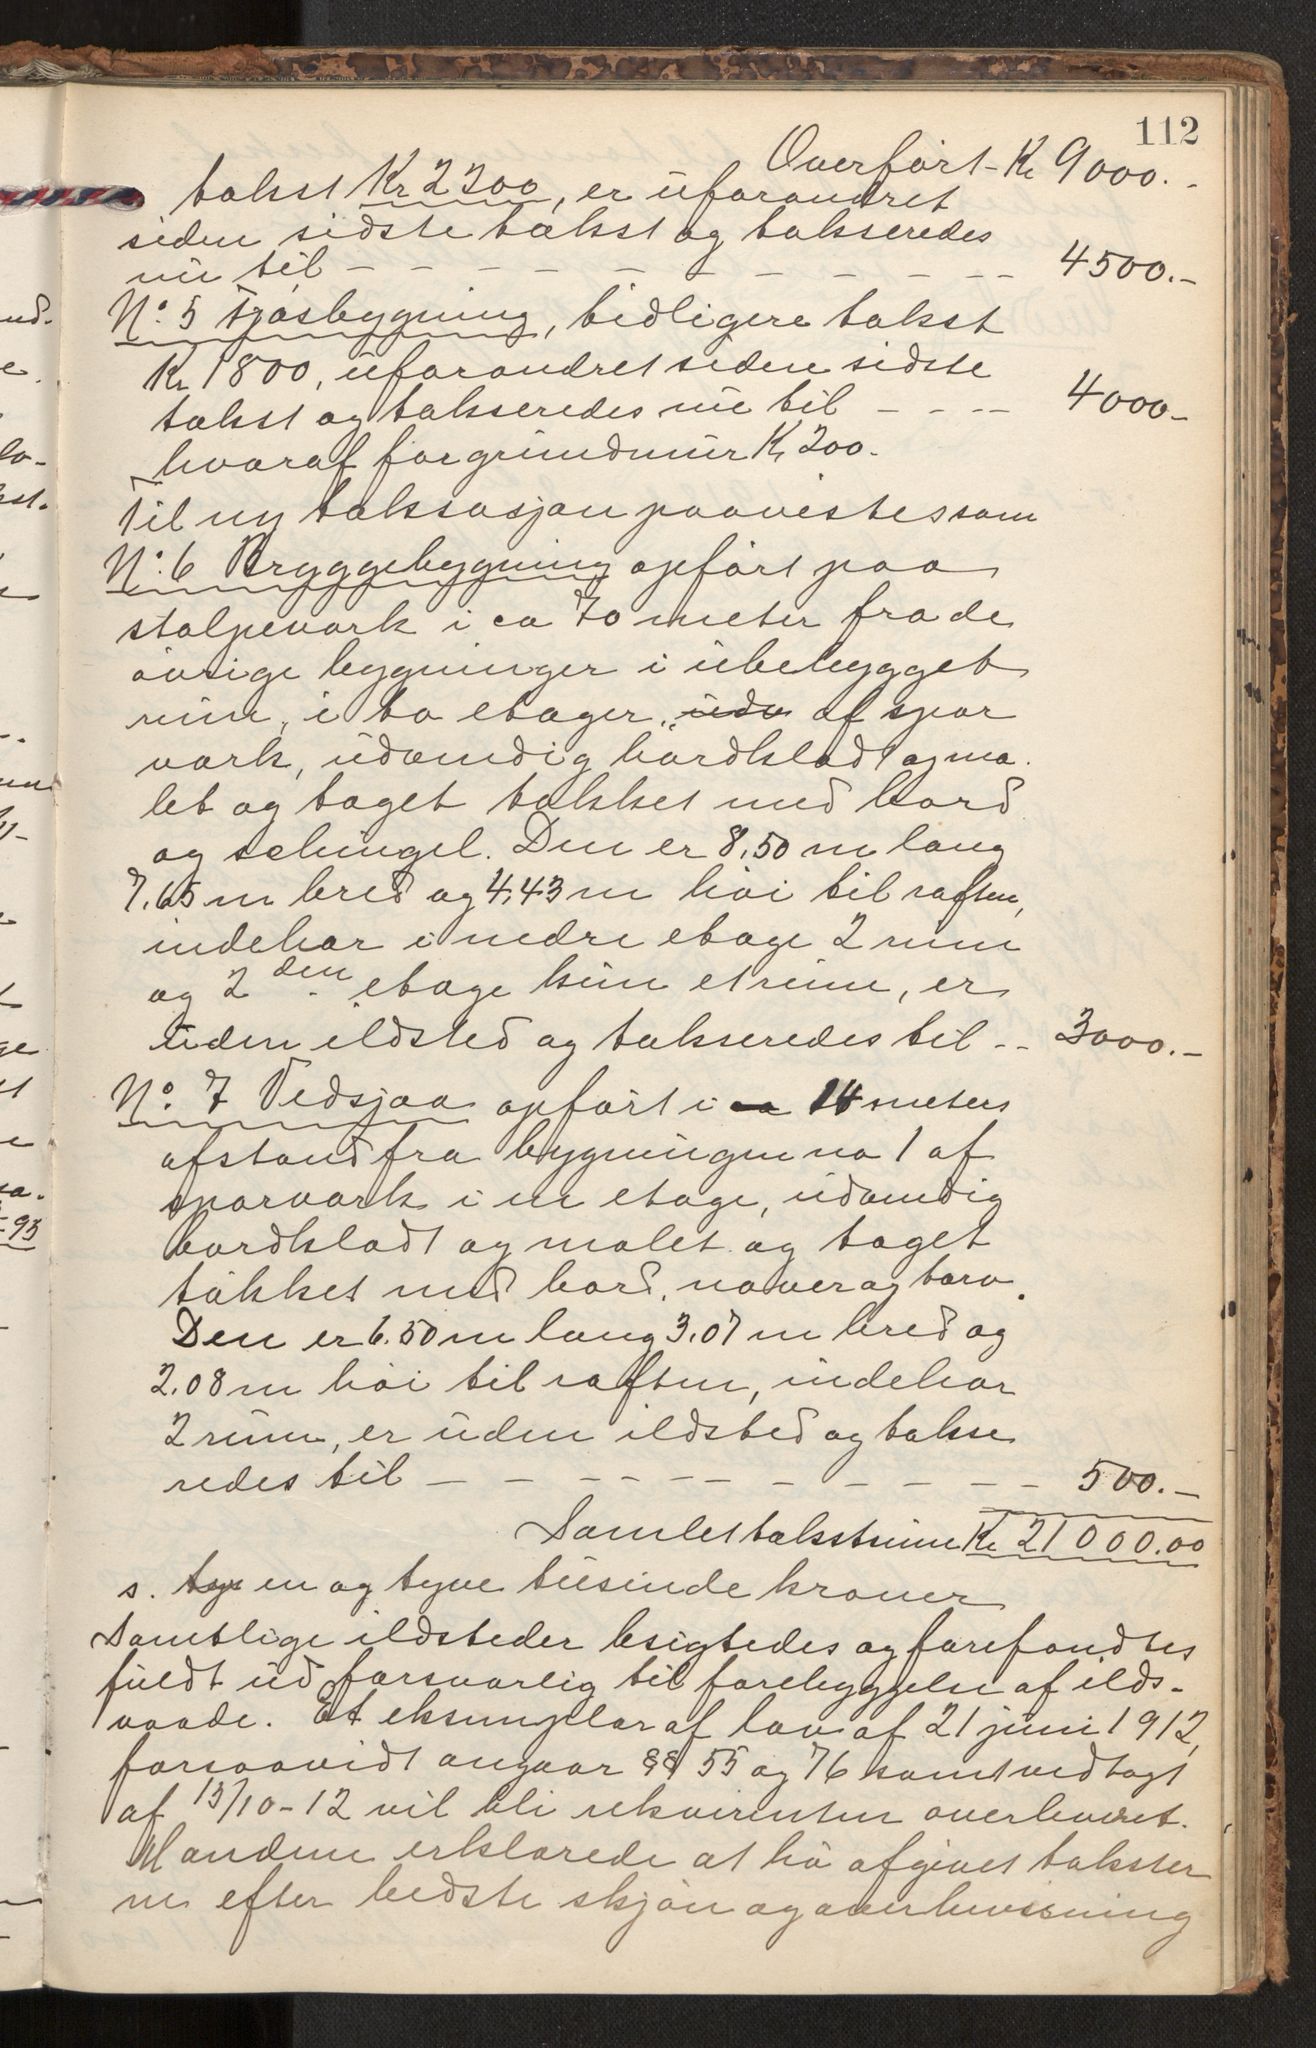 112
Overført - Kr 9000.-
takst Kr 2200, er uforandret
siden sidste takst og takseredes
nu til - - - - - - - - - 4500.-
No. 5 Fjøsbygning, tidligere takst
Kr 1800, uforandret siden sidste
takst og takseredes nu til - - - - 4000-
hvoraf for grundmur Kr 200.
Til ny taksasjon paavistes som
No. 6 Bryggebygning opført paa
stolpeverk i ca 70 meter fra de
øvrige bygninger i ubebygget
rum, i to etager, udv af spær
værk, udvendig bordklædt og ma-
let og taget tækket med bord
og schingel. Den er 8,50 m lang
7,65 m bred og 4,43 m høi til raften,
indehar i nedre etage 2 rum
og 2den etage kun et rum, er
uden ildsted og takseredes til - - 3000.-
No. 7 Vedsjaa opført i ca 14 meters
afstand fra bygningen no 1 af
spærværk i en etage, udvendig
bordklædt og malet og taget
tækket med bord, næver og torv.
Den er 6.50 m lang 3.07 m bred og
2.08 m høi til raften, indehar
2 rum, er uden ildsted og takse
redes til - - - - - - - - - 500.-
Samlet takstsum Kr 21000.00
s. tyv en og tyve tusinde kroner
Samtlige ildsteder besigtedes og forefandtes
fuldt ud forsvarlig til forebyggelse af ilds-
vaade. Et eksemplar af lov af 21 juni 1912,
forsaavidt angaar §§ 55 og 76 samt vedtægt
af 15/10-12 vil bli rekvirenten overleveret.
Mændene erklærede at ha afgivet takster
ne efter bedste skjøn og overbevisning